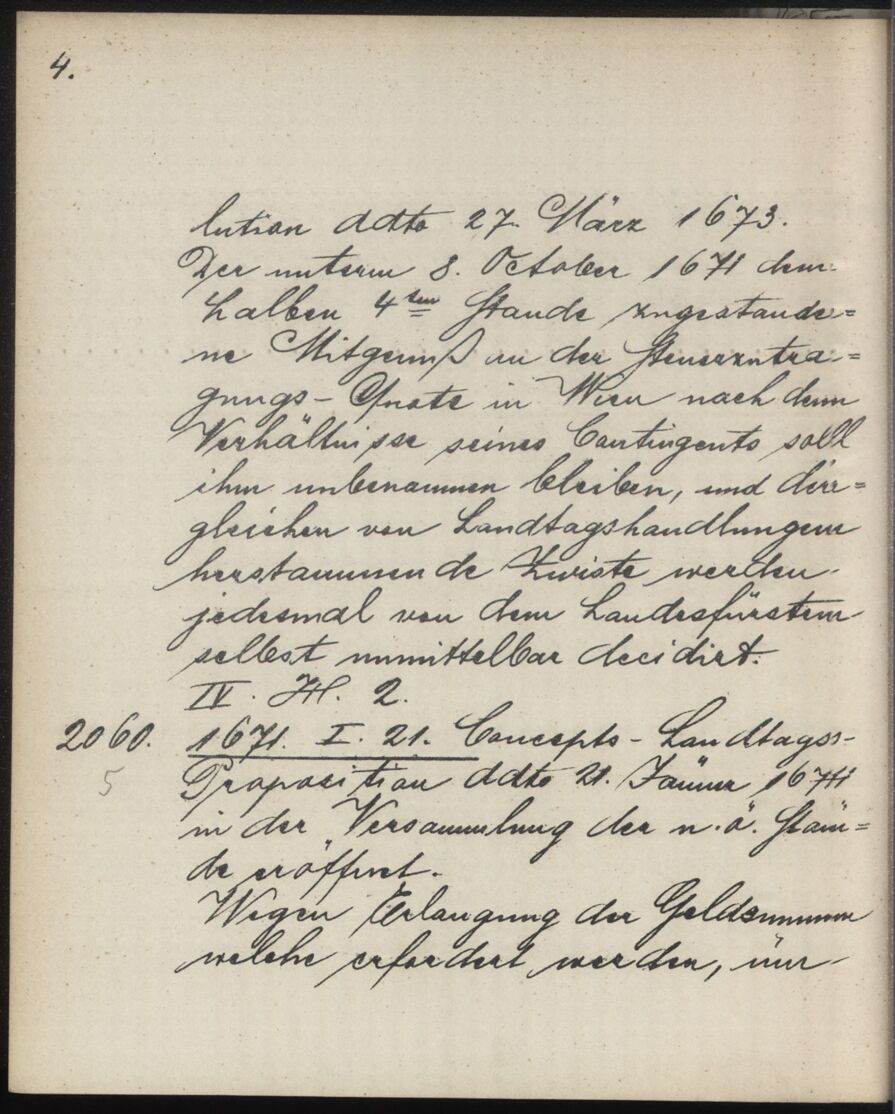 4.
lution ddto 27. März 1673.
Der unterm 8. October 1671 dem
halben 4ten Stande zugestande=
ne Mitgenuß an der Steuerzutra=
gungs-Quote in Wien nach dem
Verhältnisse seines Contingents soll
ihm unbenommen bleiben, und der=
gleichen von Landtagshandlungen
herstammende Zwiste werden
jedesmal von dem Landesfürsten
selbst unmittelbar decidirt.
IV. H. 2.
2060. 1671. I. 21. Concepts-Landtags-
5 Proposition ddto 21. Jänner 1671
in der Versammlung der n. ö. Stän=
de eröffnet.
Wegen Erlangung der Geldsummen
welche erfordert werden, um